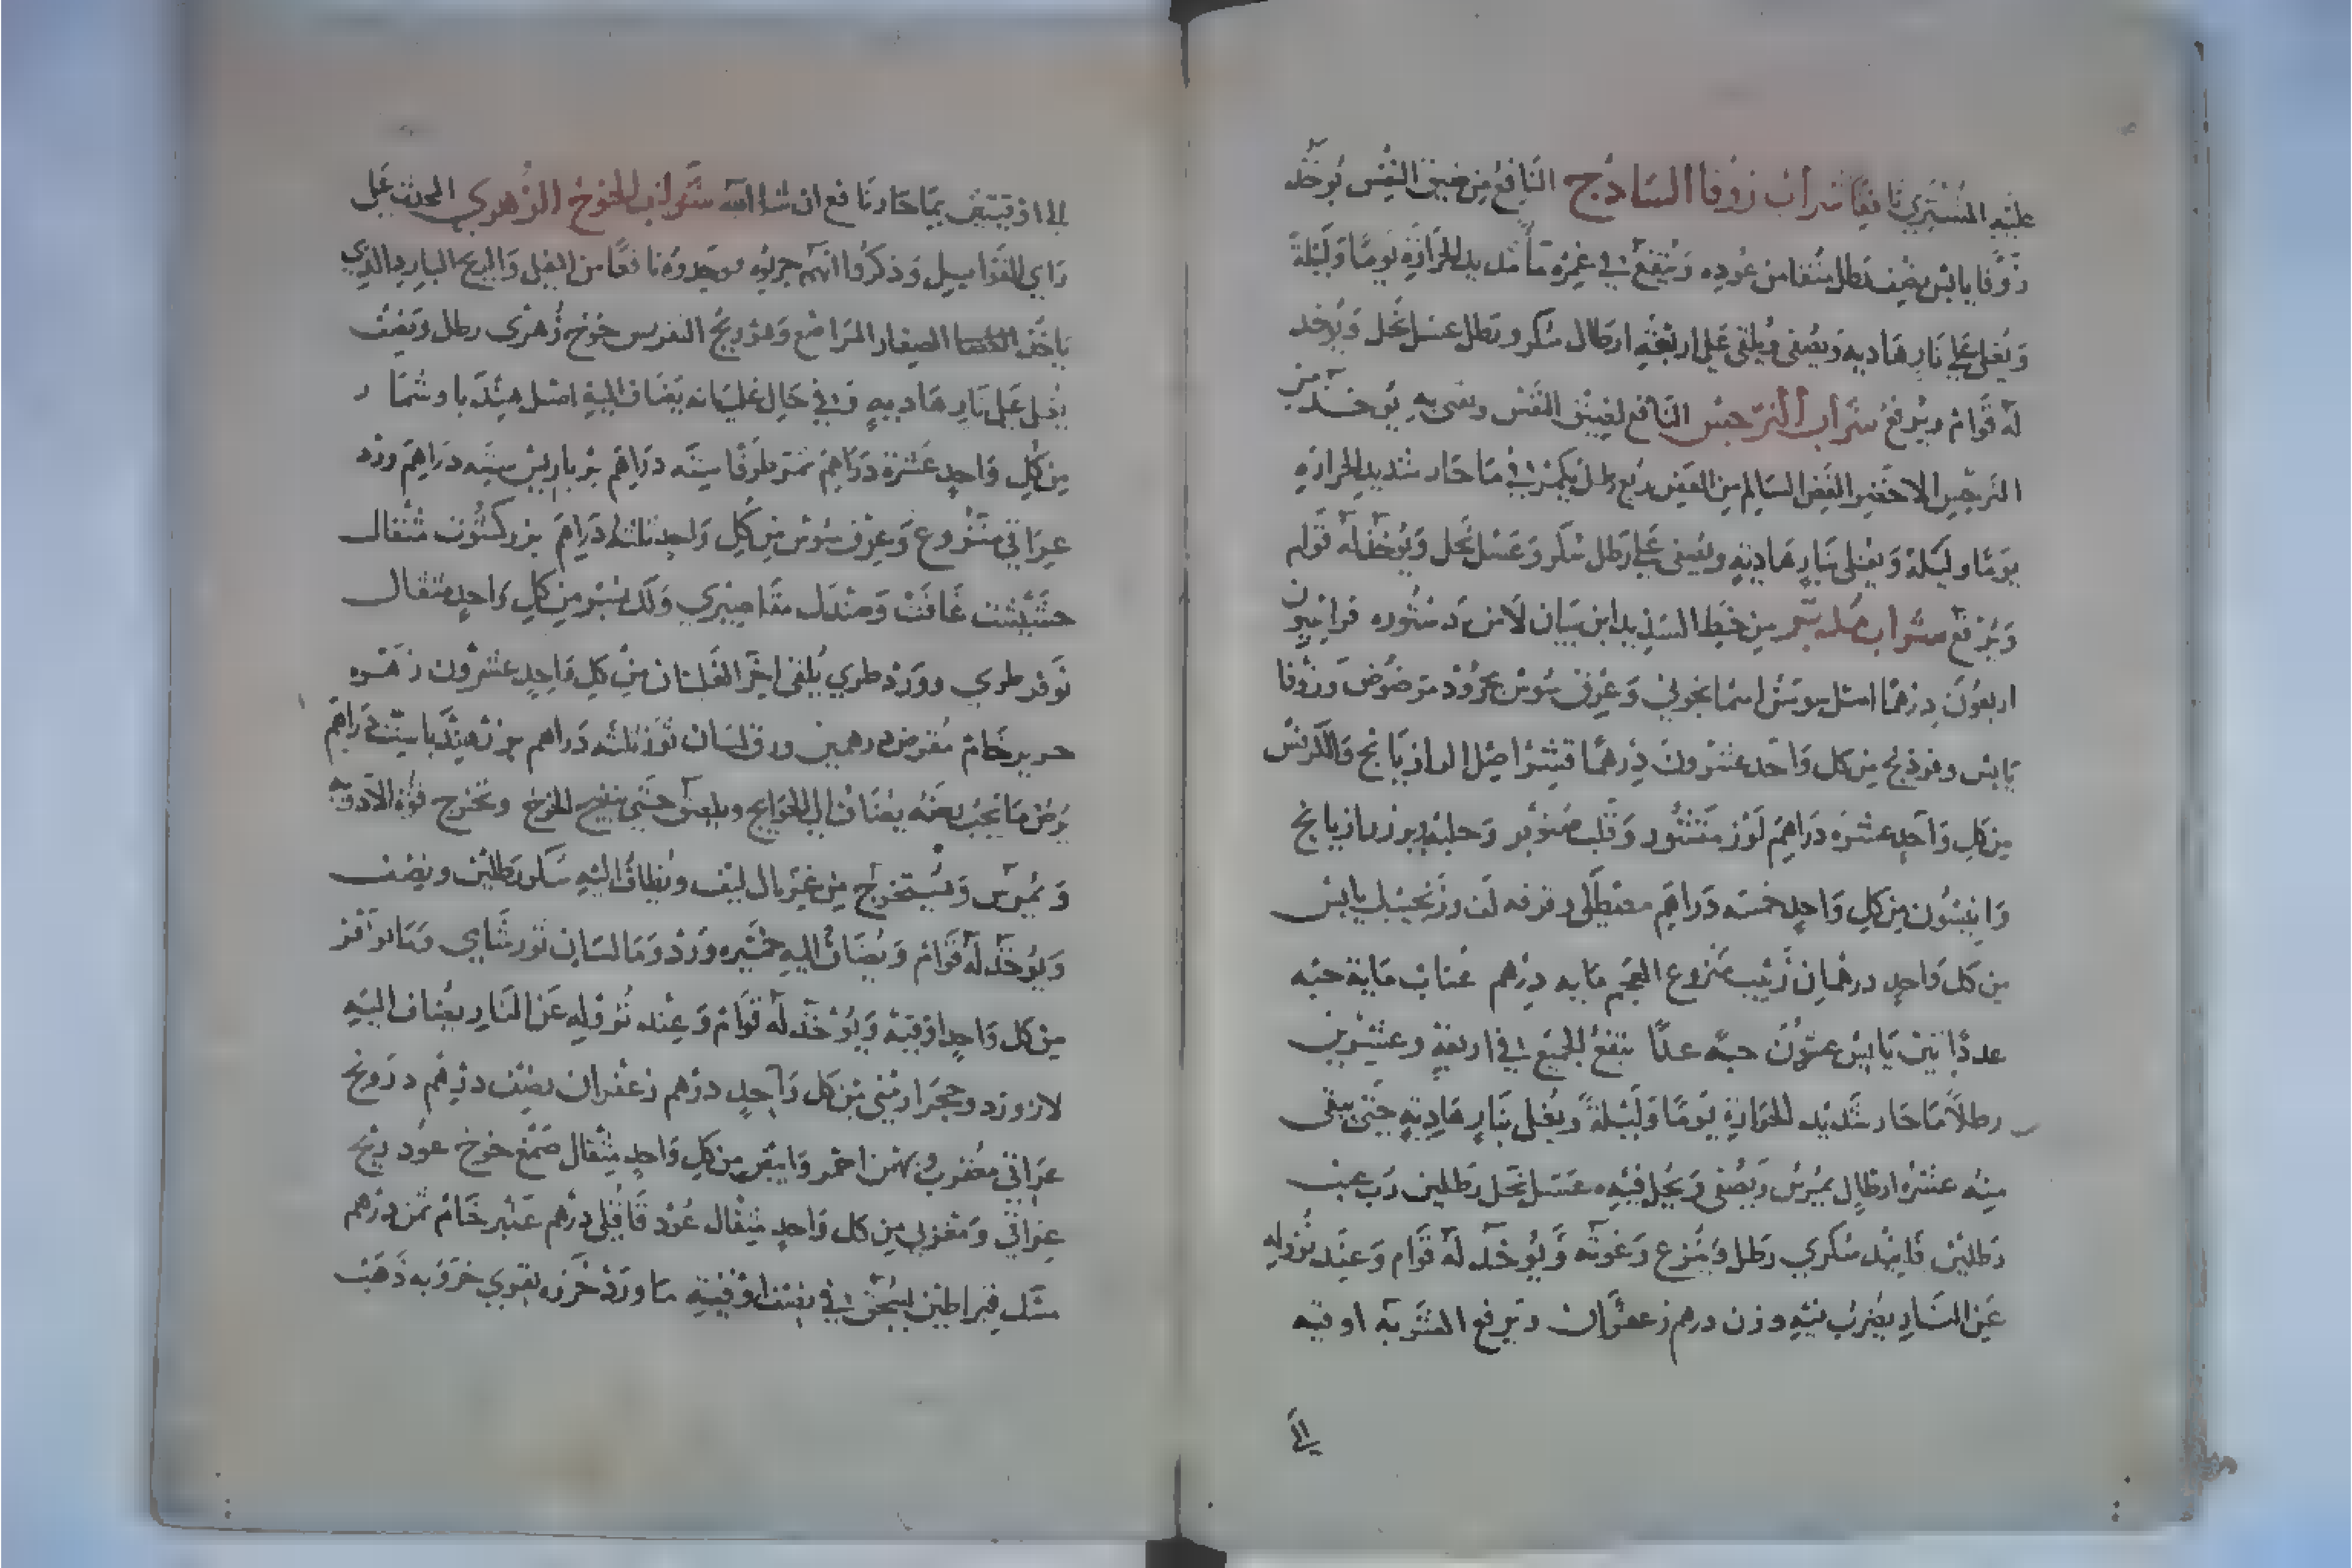 عليه المشتري نافعا شراب زوفا الساذج النافع من ضيق النفس يوخذ
زوفا يابس نصف رطل منقا من عوده وينقع في غمره ماً شديد الحرارة يوما وليلة
ويغلي علي نار هاديه ويصفى ويلقى علي اربعة ارطال سكر ورطل عسل نحل ويوخد
له قوام ويرفع شراب النرجس النافع لضيق النفس يوخذ من
النرجس الاخضر الغض السالم من العفن ربع رطل يكمر في ما حار شديد الحرارة
يوما وليلة ويغلى بنار هادية ويصفى علي رطل سكر وعسل نحل ويوخذ له قوام
ويرفع شراب من خط السديد ابن بيان
اربعون درهما اصل سوسن اسمانجوني وعرق سوس مجرود مرضوض وزوفا
يابس وفوذنج من كل واحد عشرون درهما قشر اصل الرازيانج والكرفس
من كل واحد عشره دراهم لوز مقشور وقلب صنوبر وحلبه وبزر رازيانج
وانيسون من كل واحد خمسه دراهم مصطكى وقرفه لف وزنجبيل يابس
من كل واحد درهمان زبيب منزوع العجم مايه درهم عناب ماية حبه
عددا تين يابس عشرون حبه عدًا ينقع الجميع في اربعة وعشرين
رطلاً ما حار شديد الحرارة يوما وليلة ويغلي بنار هادية حتى يبقى
منه عشره ارطال يمرس ويصفى ويجعل فيه عسل نحل رطلين رب عنب
رطلين فانيد سكري رطل وتنزع رغوته ويوخذ له قوام وعند نزوله
عن النار يضرب فيه وزن درهم زعفران ويرفع الشربه اوقيه
الى
الى اوقيتين بما حار نافع ان شا الله شراب الخوخ الزهري المجرب على
راي الفواضل وذكروا انهم جربوه فوجدوه نافعا من والريح البارد الذي
ياخذ الصغار المراضع وهو ريح النفرس خوخ زهرى رطل ونصف
يغلي على نار هاديه وفي حال غليانه يضاف اليه اصل هندبا وشمار
من كل واحد عشرة دراهم ثمر طرفا سته دراهم برباريس سته دراهم ورد
عراقي منزوع وعرق سوس من كل واحد ثلثه دراهم بزر كشوت مثقال
حشيشة غافت وصندل مقاصيري ولك بسر من كل واحد مثقال
نوفر طري وورد طري يلقى اخر الغليان من كل واحد عشرون زهره
حرير خام مقرض درهمين ورق لسان ثور ثلثه دراهم بزر هندبا ستة دراهم
يرض ما يجب رضه يضاف الى الحوايج ويطبق حتى ينضج الخوخ وتخرج قوة الادوية
ويمرس ويستخرج من غربال ليف ويضاف اليه سكر رطلين ونصف
ويوخذ له قوام ويضاف اليه خميره ورد وما لسان ثور شامي وما نوفر
من كل واحد اوقيه ويوخذ له قوام وعند نزوله عن النار يضاف اليه
لازورد وحجر ارمني من كل واحد درهم زعفران نصف درهم درونج
عراقي معقرب وبهمن احمر وابيض من كل واحد مثقال صمغ خوخ عود ريح
عراقي ومغربي من كل واحد مثقال عود قاقلي درهم عنبر خام ثمن درهم
مسك قيراطين يسحق في نصف اوقية ما ورد خروبه ذهب